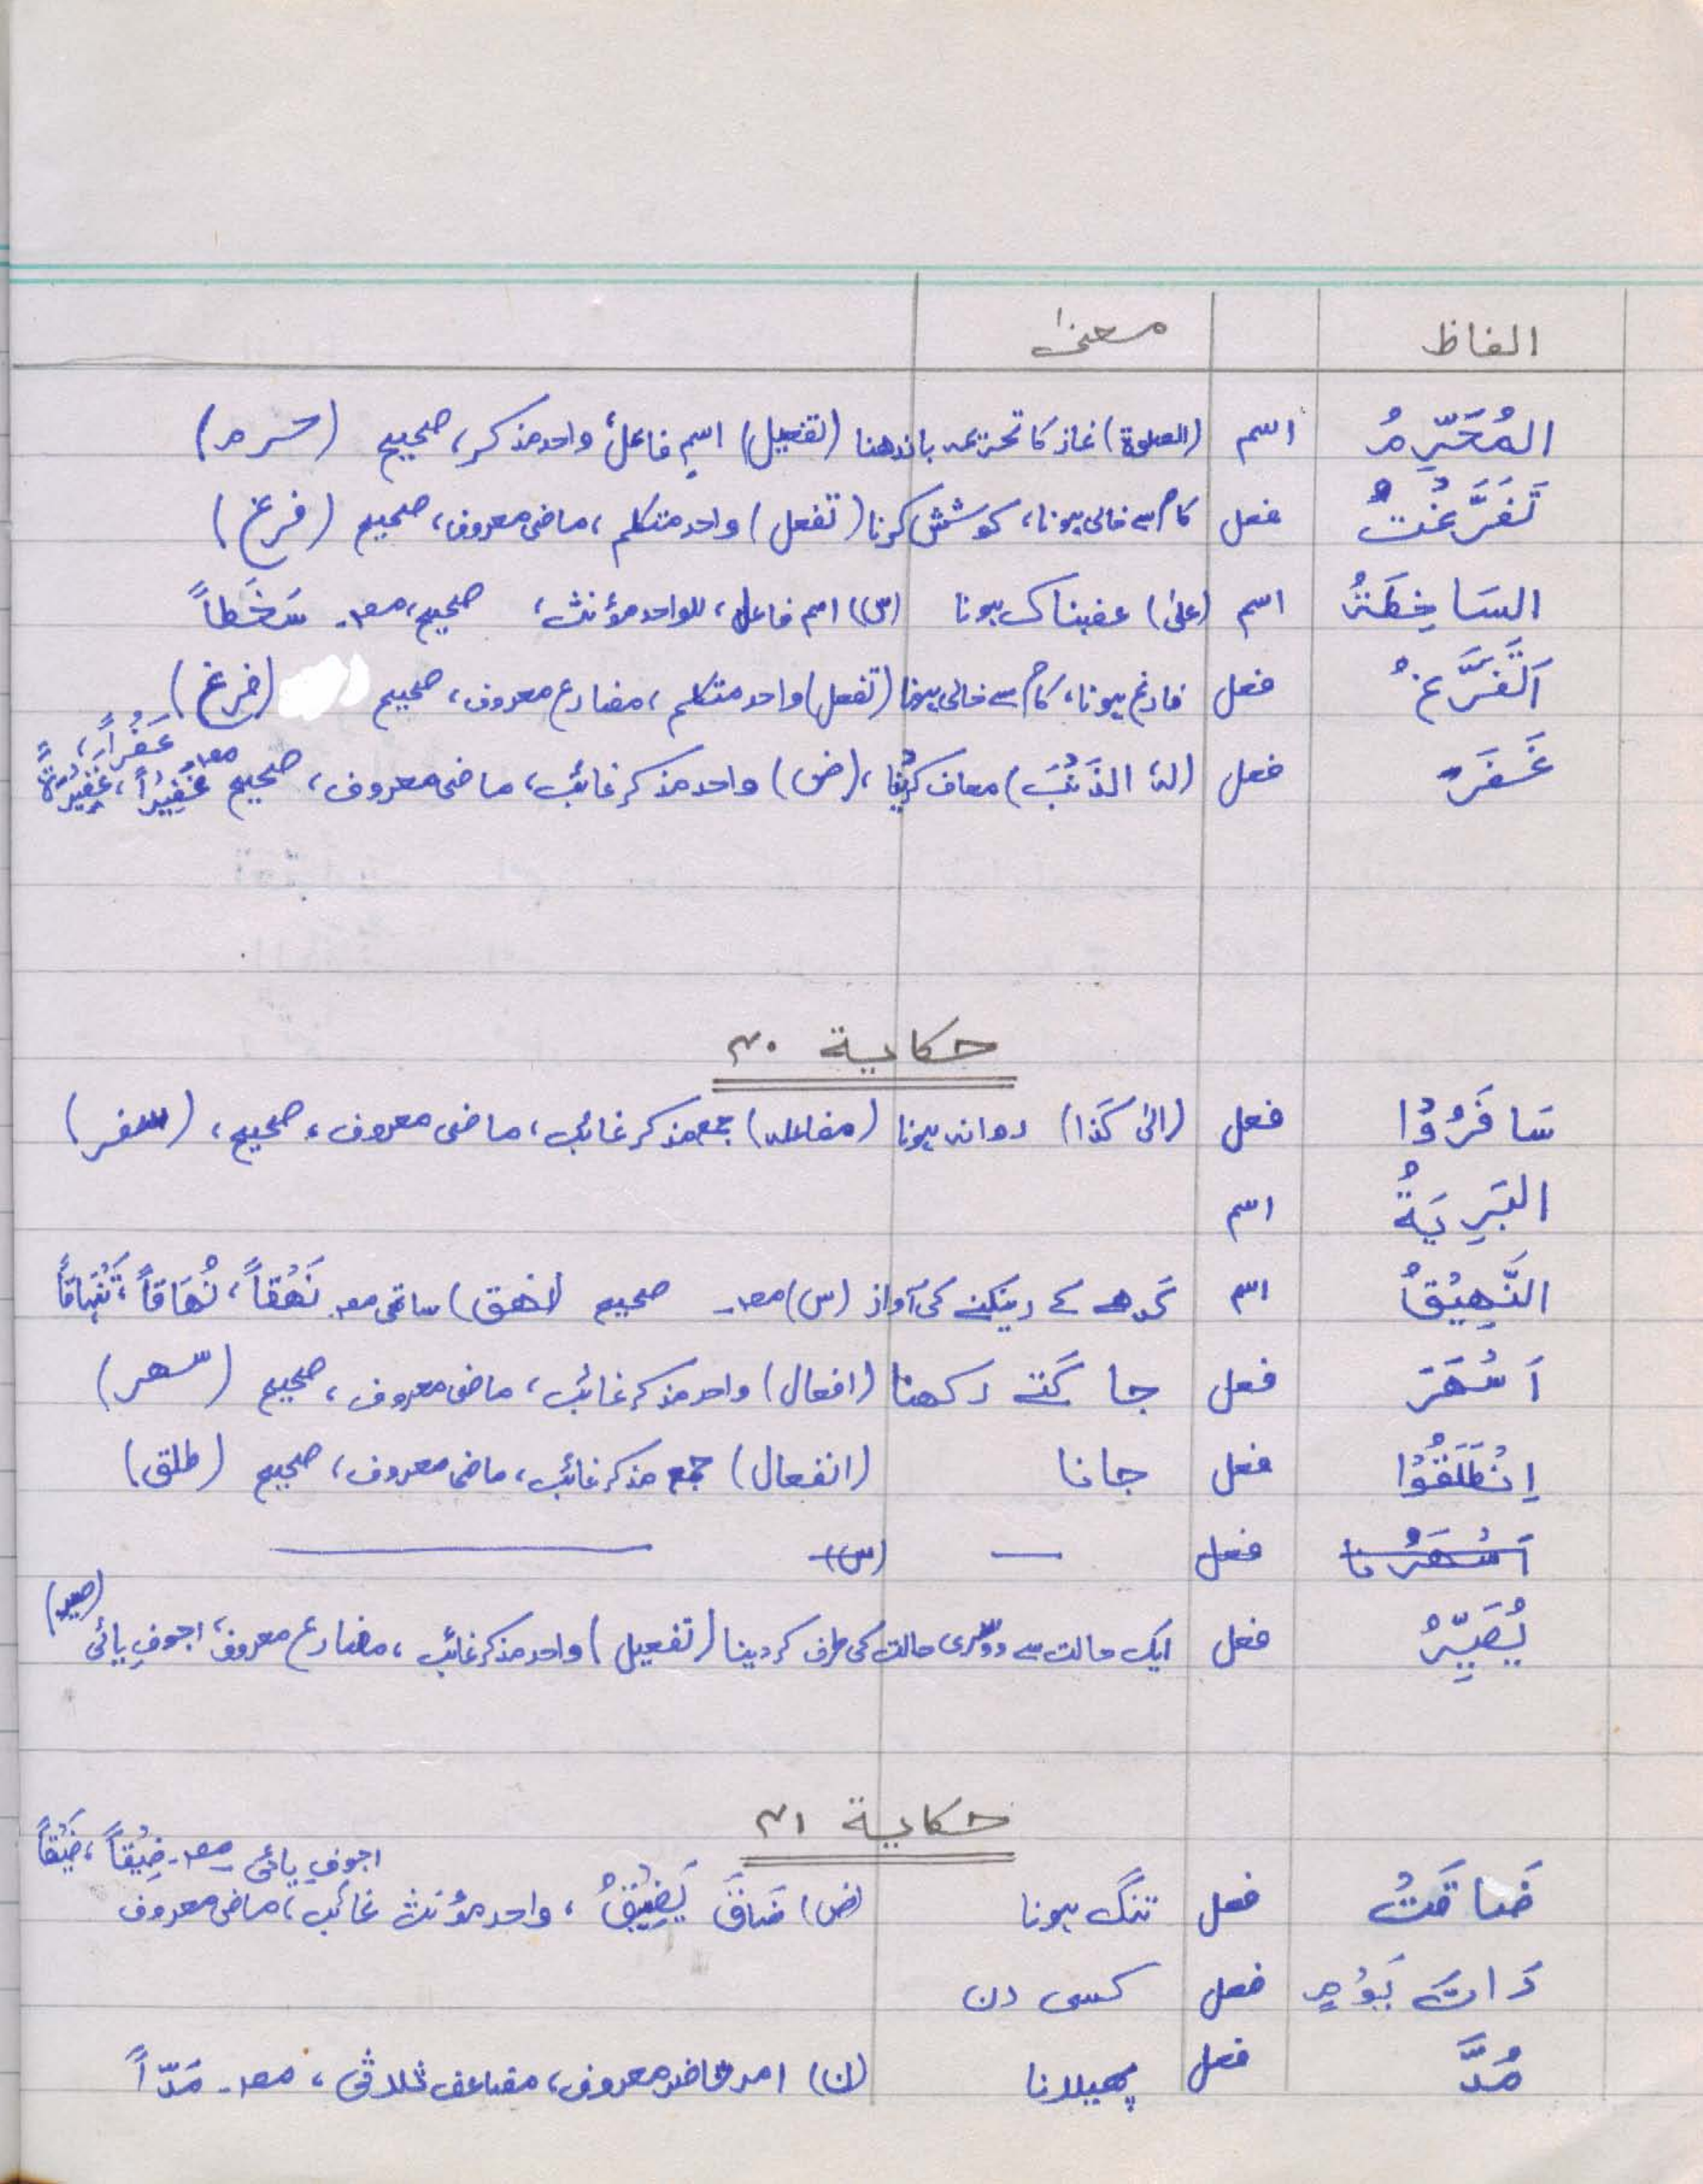 الفاظ معنیٰ
المُحَرِّمُ اسم (الصلوۃ) نماز کا تحریمہ باندھنا (تفعیل) اسمِ فاعل، واحد مذکر، صحیح (حرم)
تَفَرَّغْتُ فعل کام سے خالی ہونا، کوشش کرنا (تفعل) واحد متکلم، ماضی معروف، صحیح (فرغ)
السَاخِطَةُ اسم (علیٰ) غضبناک ہونا (س) اسم فاعل، للواحد مؤنث، صحیح، مصدر۔ سَخَطاً
اَتَفَرَّغُ فعل فارغ ہونا، کام سے خالی ہونا (تفعل) واحد متکلم، مضارع معروف، صحیح (فرغ)
غَفَرَ فعل (لہٗ الذَنْبَ) معاف کرنا، (ض) واحد مذکر غائب، ماضی معروف، صحیح مصدر غَفْراً، غَفِيْراً، غَفِيْرَةً
حكاية ۲۰
سَافَرُوْا فعل (الیٰ كَذا) روانہ ہونا (مفاعلہ) جمع مذکر غائب، ماضی معروف، صحیح، (سفر)
البَرِيَةُ اسم
النَّهِيْقُ اسم گدھے کے رینکنے کی آواز (س) مصدر۔ صحیح (نهق) مصدر نَهْقاً، نُهَاقاً، تَنْهَاقاً
اَسْهَرَ فعل جاگتے رکھنا (افعال) واحد مذکر غائب، ماضی معروف، صحیح (سهر)
اِنْطَلَقُوْا فعل جانا (انفعال) جمع مذکر غائب، ماضی معروف، صحیح (طلق)
اَسْهَرْنَا فعل — (س) —
يُصَيِّرُ فعل ایک حالت سے دوسری حالت کی طرف کر دینا (تفعیل) واحد مذکر غائب، مضارع معروف، اجوفِ یائی (صیر)
حكاية ۲۱
ضَاقَتْ فعل تنگ ہونا (ض) ضَاقَ يَضِيْقُ، واحد مؤنث غائب، ماضی معروف
اجوفِ یائی مصدر۔ ضِيْقاً، ضَيْقاً
ذَاتَ يَوْمٍ فعل کسی دن
مُدَّ فعل پھیلانا (ن) امر حاضر معروف، مضاعف ثلاثی، مصدر۔ مَدّاً